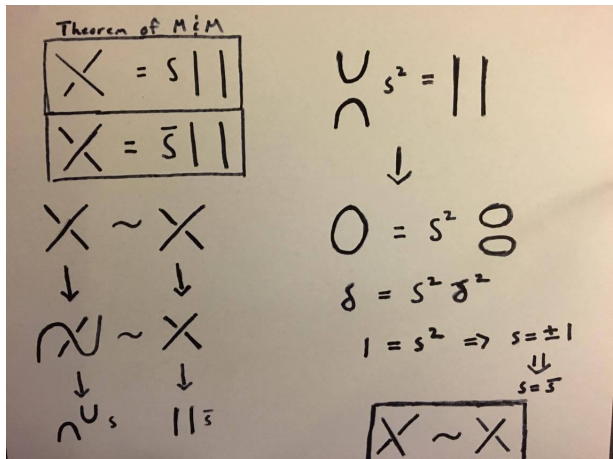 Theorem of M & M
╳ = s | |
╳ = s̄ | |
╳ ~ ╳
↓ ↓
∩╳∪ ~ ╳
↓ ↓
∩∪ s | | s̄
∪
∩ s² = | |
↓
O = s² O
O
δ = s² δ²
1 = s² => s = ± 1
⇓
s = s̄
╳ ~ ╳